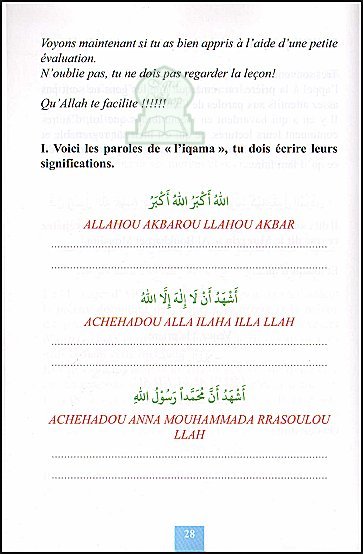 Voyons maintenant si tu as bien appris à l'aide d'une petite
évaluation.
N'oublie pas, tu ne dois pas regarder la leçon!
Qu'Allah te facilite !!!!!!
I. Voici les paroles de « l'iqama », tu dois écrire leurs
significations.
اللهُ أَكْبَرُ اللهُ أَكْبَرُ
ALLAHOU AKBAROU LLAHOU AKBAR
أَشْهَدُ أَنْ لَا إِلٰهَ إِلَّا اللهُ
ACHEHADOU ALLA ILAHA ILLA LLAH
أَشْهَدُ أَنَّ مُحَمَّداً رَسُوْلُ اللهِ
ACHEHADOU ANNA MOUHAMMADA RRASOULOU
LLAH
28